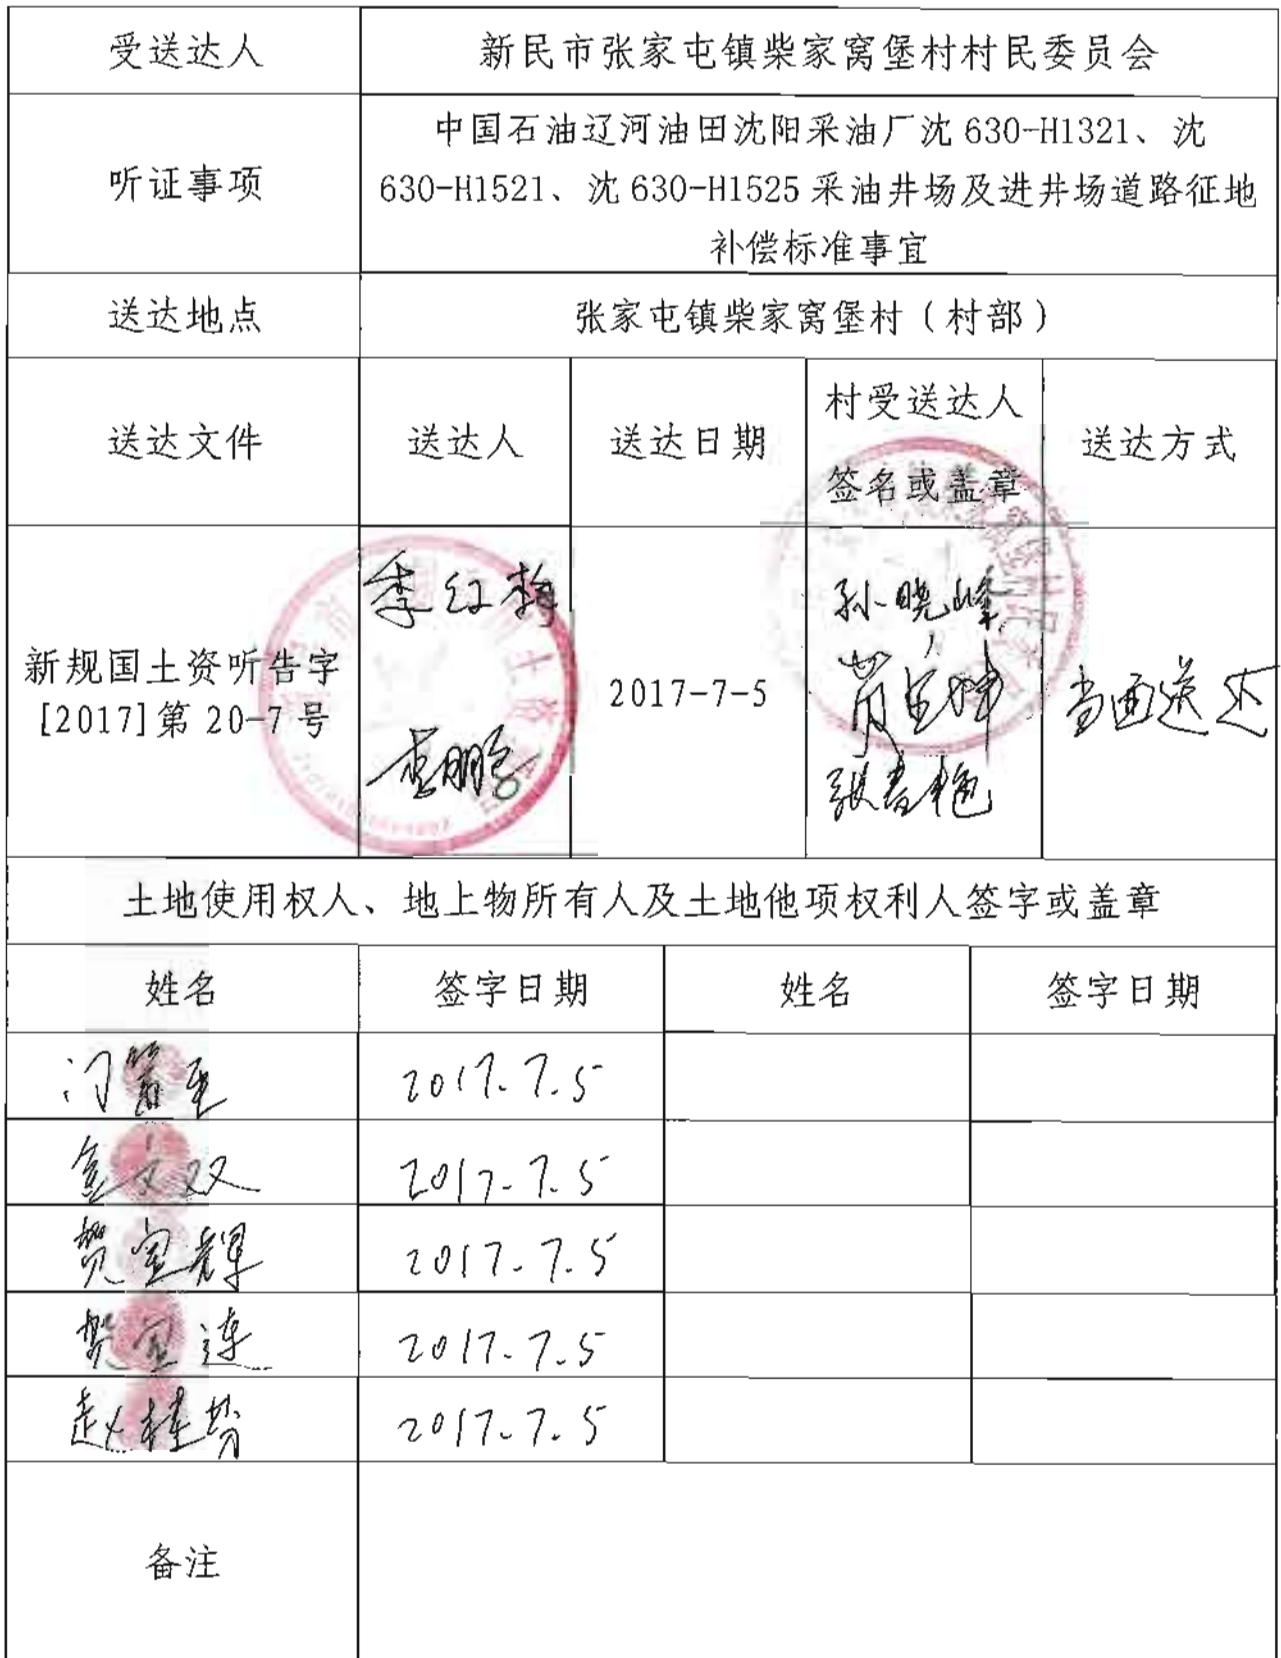 受送达人
新民市张家屯镇柴家窝堡村村民委员会
听证事项
中国石油辽河油田沈阳采油厂沈 630-H1321、沈
630-H1521、沈 630-H1525 采油井场及进井场道路征地
补偿标准事宜
送达地点
张家屯镇柴家窝堡村（村部）
送达文件
送达人
送达日期
村受送达人
签名或盖章
送达方式
新规国土资听告字
[2017]第 20-7 号
李红梅
2017-7-5
孙晓峰
张春艳
当面送达
土地使用权人、地上物所有人及土地他项权利人签字或盖章
姓名
签字日期
姓名
签字日期
2017.7.5
2017.7.5
贺宝辉
2017.7.5
贺宝连
2017.7.5
赵桂芬
2017.7.5
备注